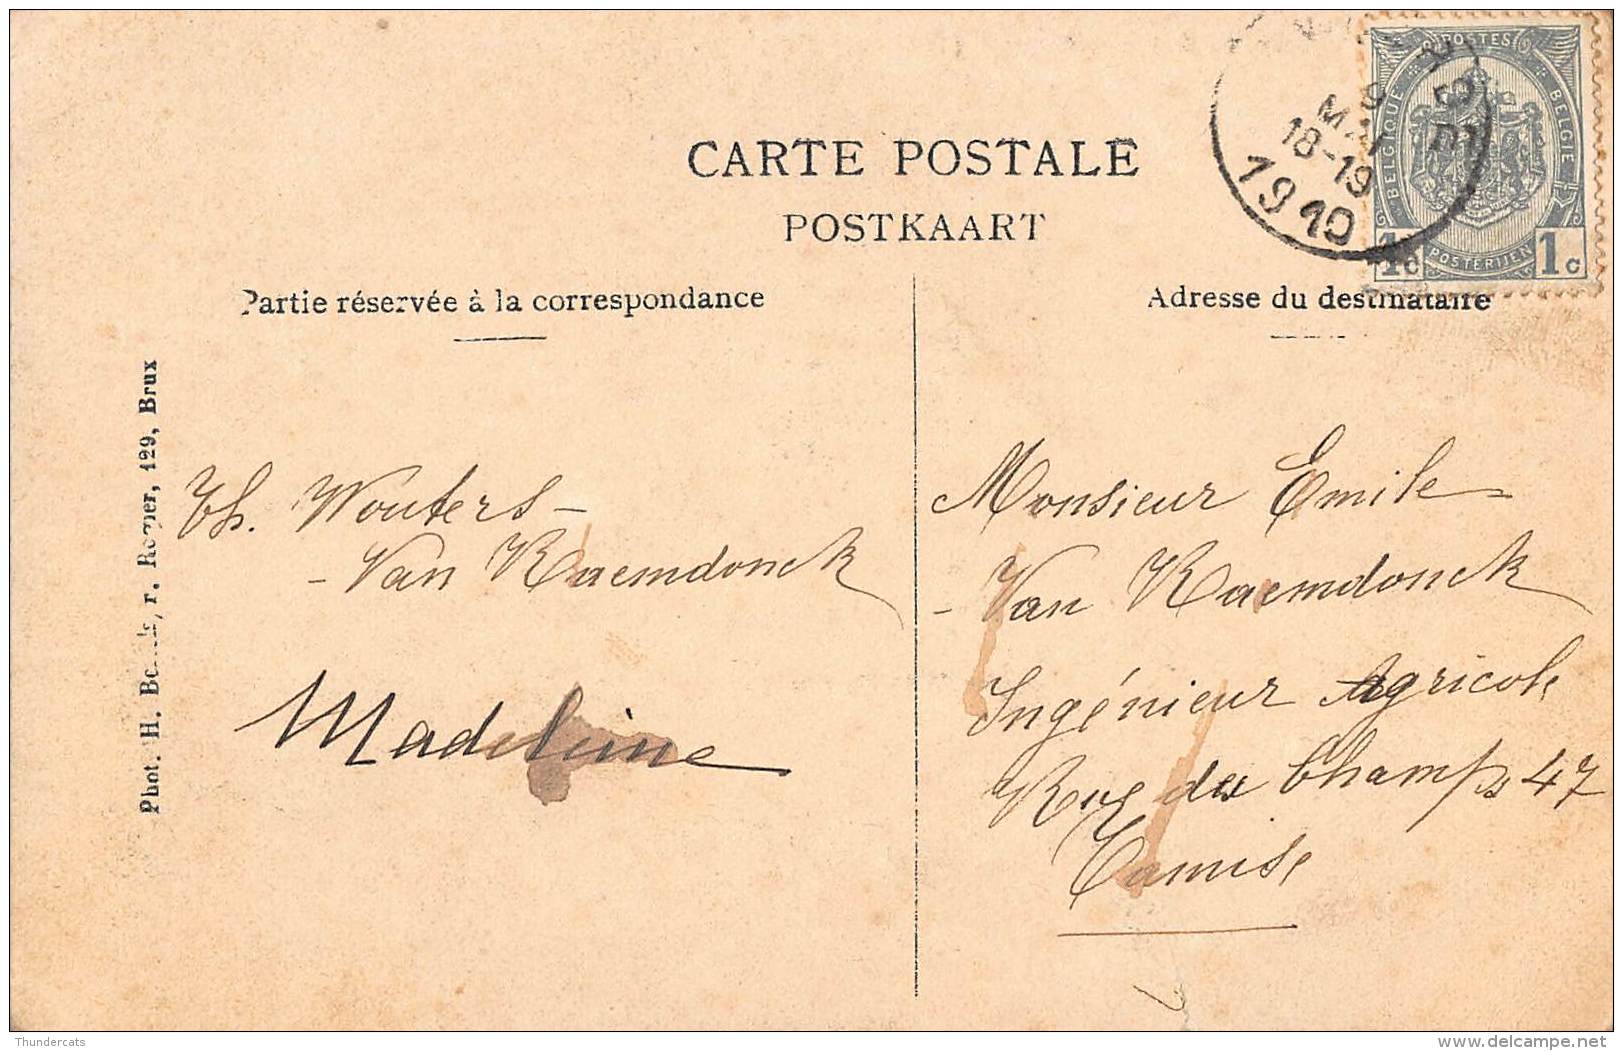 CARTE POSTALE
POSTKAART
Partie réservée à la correspondance
Adresse du destinataire
POSTES
BELGIQUE
BELGIE
POSTERIJEN
1c
1c
9
MAI
18-19
1910
Phot. H. r. Rogier, 129, Brux
Th. Wouters -
- Van Raemdonck
Madeleine
Monsieur Emile
- Van Raemdonck
Ingénieur Agricole
Rue des Champs 47
Tamise
Thundercats
www.delcampe.net